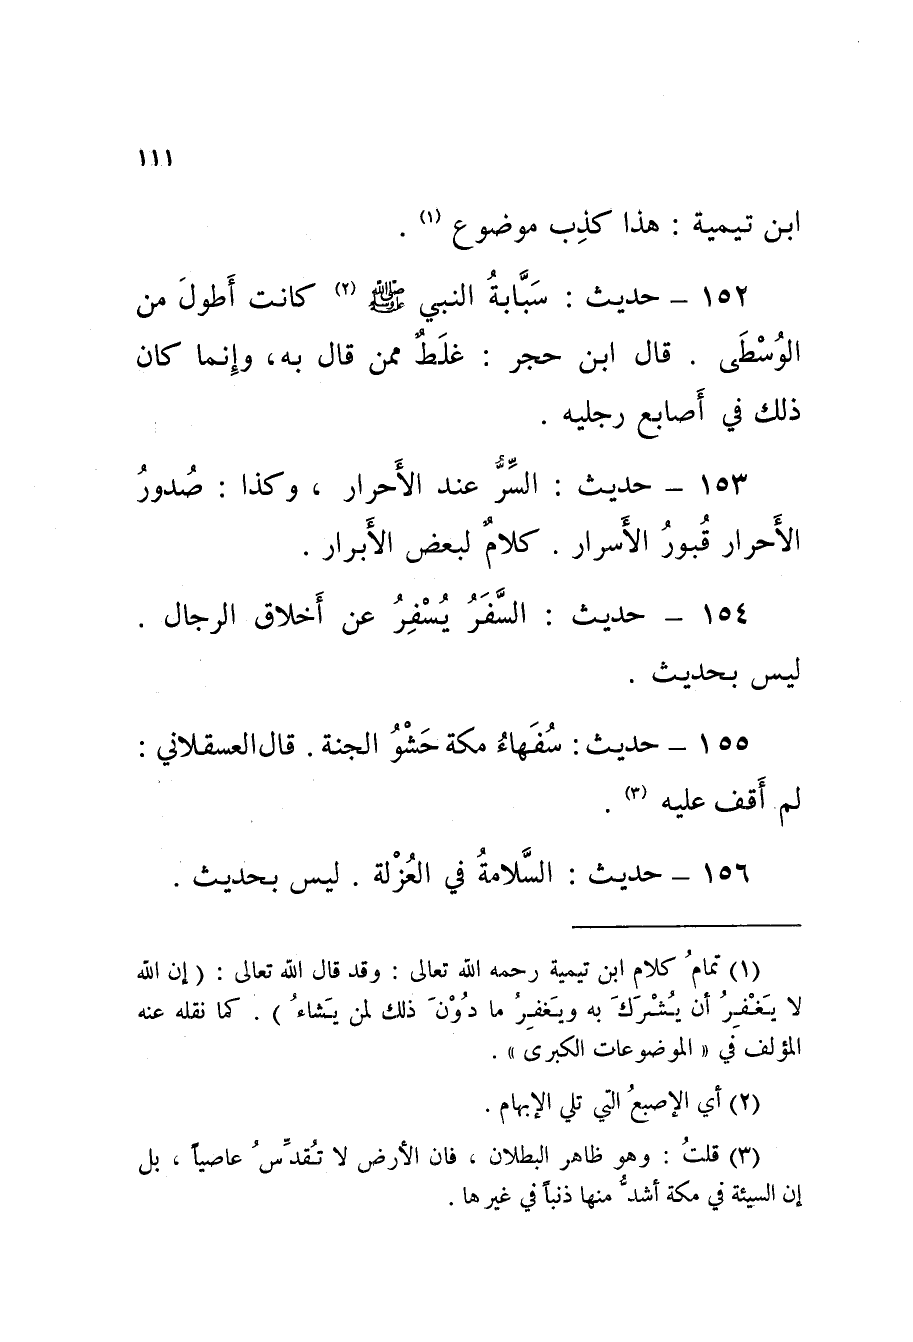 ١١١
ابن تيمية : هذا كذِب موضوع (١) .
١٥٢ ـ حديث : سَبَّابةُ النبي ﷺ (٢) كانت أَطولَ من
الوُسْطَى . قال ابن حجر : غلَطٌ ممن قال به، وإِنما كان
ذلك في أَصابع رجليه .
١٥٣ ـ حديث : السِّرُّ عند الأَحرار ، وكذا : صُدورُ
الأَحرار قُبورُ الأَسرار . كلامٌ لبعض الأَبرار .
١٥٤ ـ حديث : السَّفَرُ يُسْفِرُ عن أَخلاق الرجال .
ليس بحديث .
١٥٥ ـ حديث : سُفَهاءُ مكة حَشْوُ الجنة . قال العسقلاني :
لم أَقف عليه (٣) .
١٥٦ ـ حديث : السَّلامةُ في العُزْلة . ليس بحديث .
(١) تمامُ كلام ابن تيمية رحمه الله تعالى : وقد قال الله تعالى : ( إن الله
لا يَغْفِرُ أن يُشْرَكَ به ويَغفِرُ ما دُوْنَ ذلك لمن يَشاءُ ) . كما نقله عنه
المؤلف في « الموضوعات الكبرى » .
(٢) أي الإصبعُ التي تلي الإبهام .
(٣) قلتُ : وهو ظاهر البطلان ، فان الأرض لا تُقدِّسُ عاصياً ، بل
إن السيئة في مكة أشدُّ منها ذنباً في غيرها .